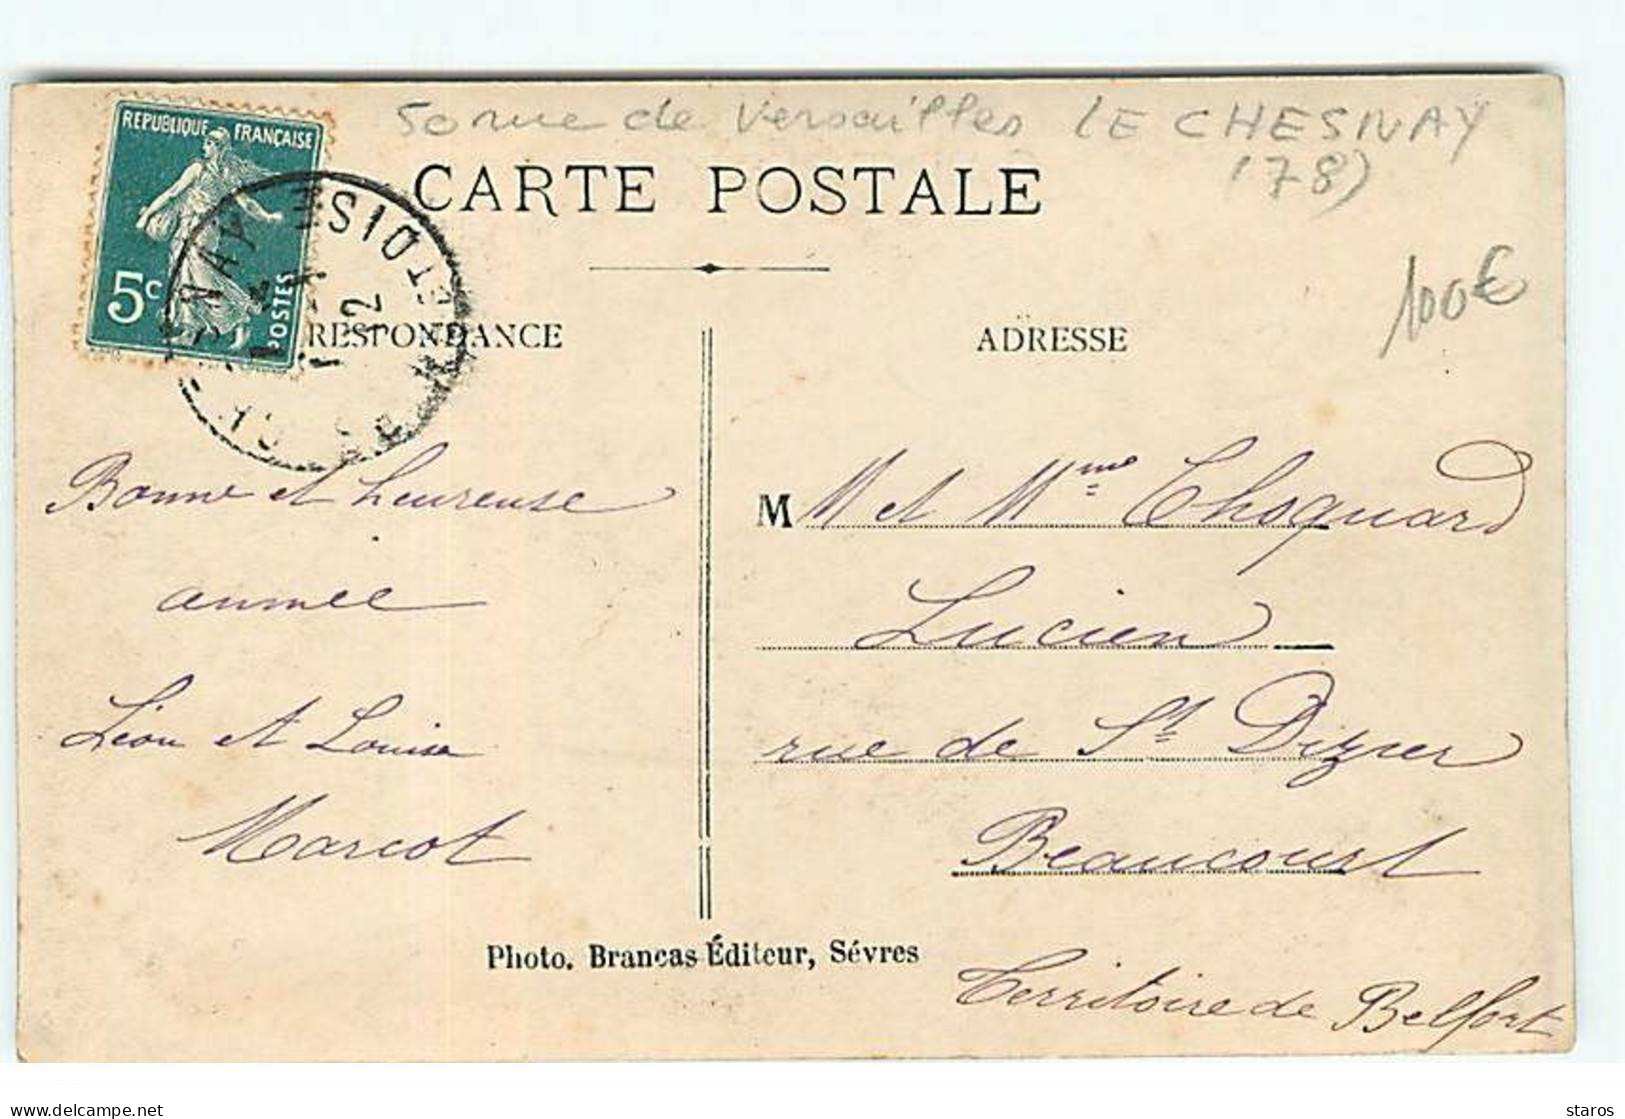 50 rue de Versailles LE CHESNAY
(78)
REPUBLIQUE FRANÇAISE
5c
POSTES
CARTE POSTALE
100€
RESPONDANCE
ADRESSE
Bonne et heureuse
année
Léon et Louise
Marcot
M M et Mme Choquard
Lucien
rue de St Dizier
Beaucourt
Territoire de Belfort
Photo. Brancas Éditeur, Sévres
delcampe.net
staros